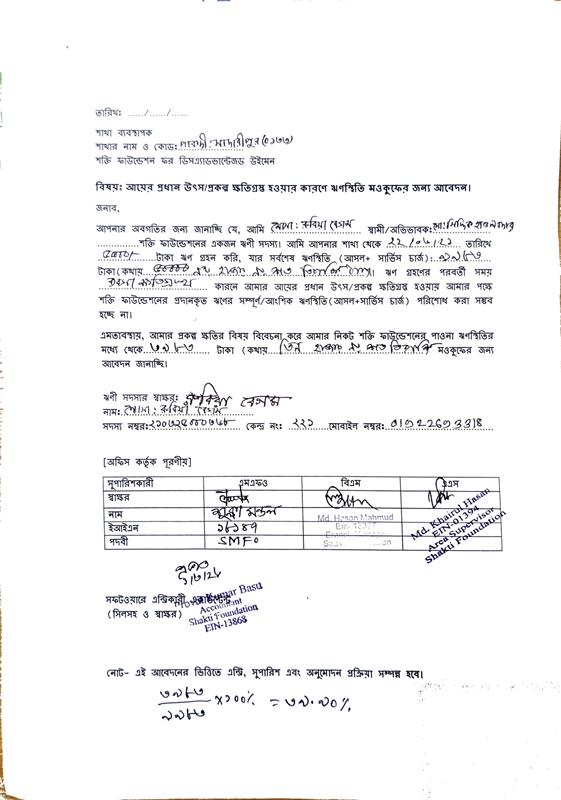 তারিখ: ....../....../......
শাখা ব্যবস্থাপক
শাখার নাম ও কোড: মাদারীপুর (০১৭৩)
শক্তি ফাউন্ডেশন ফর ডিসএ্যাডভান্টেজড উইমেন
বিষয়: আয়ের প্রধান উৎস/প্রকল্প ক্ষতিগ্রস্থ হওয়ার কারণে ঋণস্থিতি মওকুফের জন্য আবেদন।
জনাব,
আপনার অবগতির জন্য জানাচ্ছি যে, আমি মোসা: রুবিয়া বেগম স্বামী/অভিভাবক: মো:
শক্তি ফাউন্ডেশনের একজন ঋণী সদস্য। আমি আপনার শাখা থেকে ২২/০৮/২১ তারিখে
টাকা ঋণ গ্রহন করি, যার সর্বশেষ ঋণস্থিতি (আসল+ সার্ভিস চার্জ): ৯৯৮৩
টাকা(কথায় নয় হাজার নয় শত তিরাশি টাকা)। ঋণ গ্রহণের পরবর্তী সময়
কারনে আমার আয়ের প্রধান উৎস/প্রকল্প ক্ষতিগ্রস্থ হওয়ায় আমার পক্ষে
শক্তি ফাউন্ডেশনের প্রদানকৃত ঋণের সম্পূর্ণ/আংশিক ঋণস্থিতি(আসল+সার্ভিস চার্জ) পরিশোধ করা সম্ভব
হচ্ছে না।
এমতাবস্থায়, আমার প্রকল্প ক্ষতির বিষয় বিবেচনা করে আমার নিকট শক্তি ফাউন্ডেশনের পাওনা ঋণস্থিতির
মধ্যে থেকে ৩৯৮৩ টাকা (কথায় তিন হাজার নয় শত তিরাশি মওকুফের জন্য
আবেদন জানাচ্ছি।
ঋণী সদস্যর স্বাক্ষর: রুবিয়া বেগম
নাম: মোসা: রুবিয়া বেগম
সদস্য নম্বর: কেন্দ্র নং: ২২১ মোবাইল নম্বর:
[অফিস কর্তৃক পূরণীয়]
সুপারিশকারী এমএফও বিএম এএস
স্বাক্ষর
নাম মন্ডল Md. Hasan Mahmud Md. Khairul Hasan
ইআইএন ১৮১৪৭ EIN-01394
পদবী SMFO Area Supervisor
Shakti Foundation
সফটওয়ারে এন্ট্রিকারী Kumar Basu
(সিলসহ ও স্বাক্ষর) Accountant
Shakti Foundation
EIN-13868
নোট- এই আবেদনের ভিত্তিতে এন্ট্রি, সুপারিশ এবং অনুমোদন প্রক্রিয়া সম্পন্ন হবে।
৩৯৮৩
×১০০% = ৩৯.৯০%
৯৯৮৩